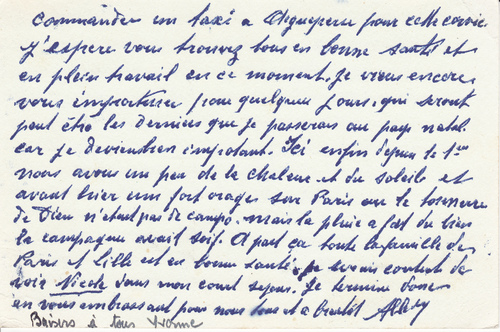 commander un taxi a Aigueperse pour cette corvée
J'espère vous trouver tous en bonne santé et
en plein travail en ce moment. Je viens encore
vous importuner pour quelques jours, qui seront
peut être les derniers que je passerais au pays natal.
car je deviens bien impotant. Ici enfin depuis le 1er
nous avons un peu de la chaleur et du soleil et
avant hier un fort orage sur Paris ou le tonnerre
de Dieu n'était pas de campo. mais la pluie a fait du bien
la campagne avait soif. A part ça toute la famille de
Paris et Lille est en bonne santé. je serais content de
voir Nicole dans mon court sejour. Je termine donc
en vous embrassant pour nous tous et a bientôt
Baisers à tous Yvonne